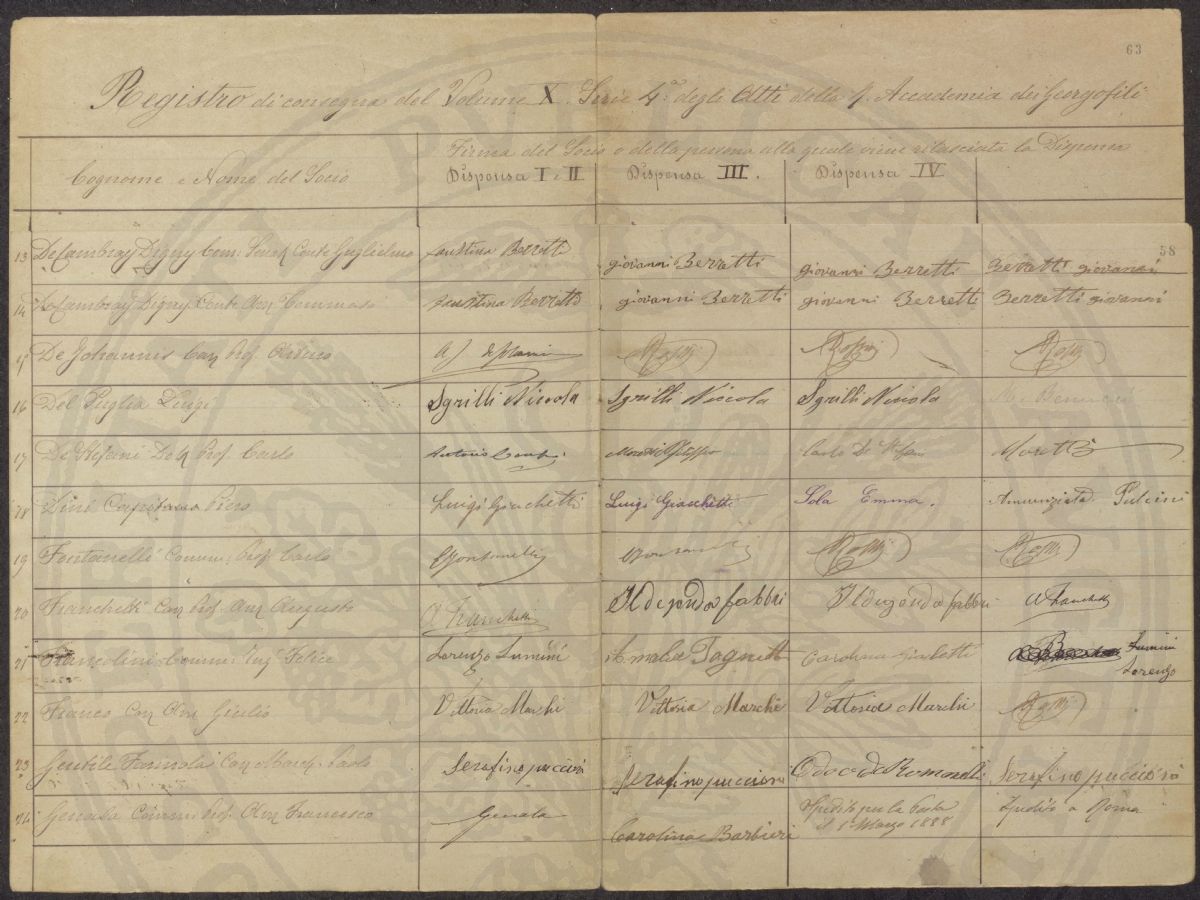 63
Registro di consegna del Volume X. Serie 4.ª degli Atti della R. Accademia dei Georgofili
Firma del Socio o della persona alla quale viene rilasciata la Dispensa
Cognome e Nome del Socio Dispensa I e II Dispensa III. Dispensa IV
58
13 De Cambray Digny Com: Senat. Conte Guglielmo Faustina Berretti giovanni Berretti giovanni Berretti Berretti giovanni
14 De Cambray Digny Conte Avv. Tommaso Faustina Berretti giovanni Berretti giovanni Berretti Berretti giovanni
15 De Johannis Cav. Prof. Arturo Rossi Rossi Rossi
16 Del Puglia Luigi Sgrilli Niccola Sgrilli Niccola Sgrilli Niccola
17 De Stefani Dott. Prof. Carlo Antonio Carlo De Stefani Moretti
18 Dini Capitano Piero Luigi Giachetti Luigi Giachetti Sola Emma. Annunziata Pulcini
19 Fontanelli Comm: Prof. Carlo CFontanelli CFontanelli Rossi Rossi
20 Franchetti Cav. Prof. Avv. Augusto A Franchetti Ildegonda fabbri Ildegonda fabbri A Franchetti
21 Francolini Comm: Ing. Felice Lorenzo Lumini Amalia Tognetti Carolina Giachetti Lumini
Lorenzo
22 Franco Cav. Avv. Giulio Vittoria Marchi Vittoria Marchi Vittoria Marchi Rossi
23 Gentile Farinola Cav. March. Paolo Serafino puccioni Serafino puccioni Odoardo Romanelli Serafino puccioni
24 Genala Comm: Prof. Avv. Francesco Genala Carolina Barbieri Spedito per la Posta
il 1º Marzo 1888 Spedito a Roma